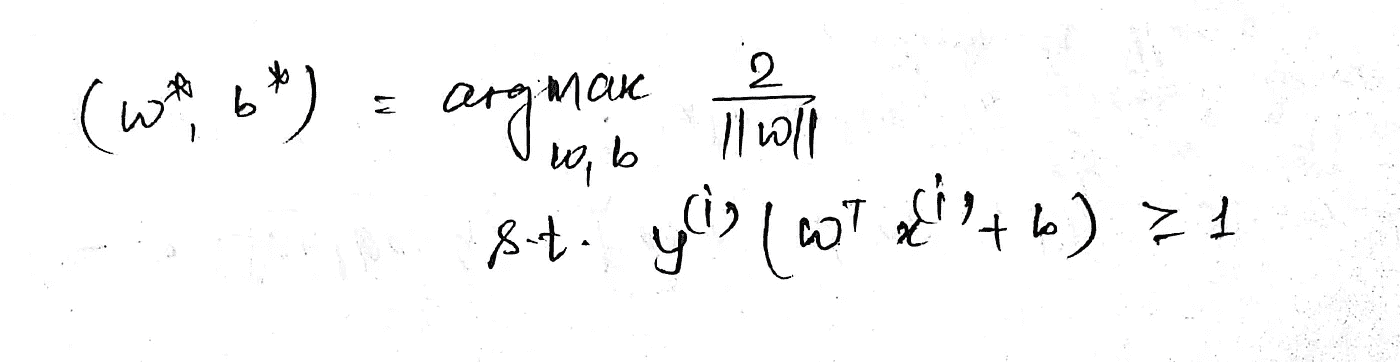 (w*, b*) = argmax_{w, b} 2 / ||w||
s.t. y^{(i)} (w^T x^{(i)} + b) ≥ 1